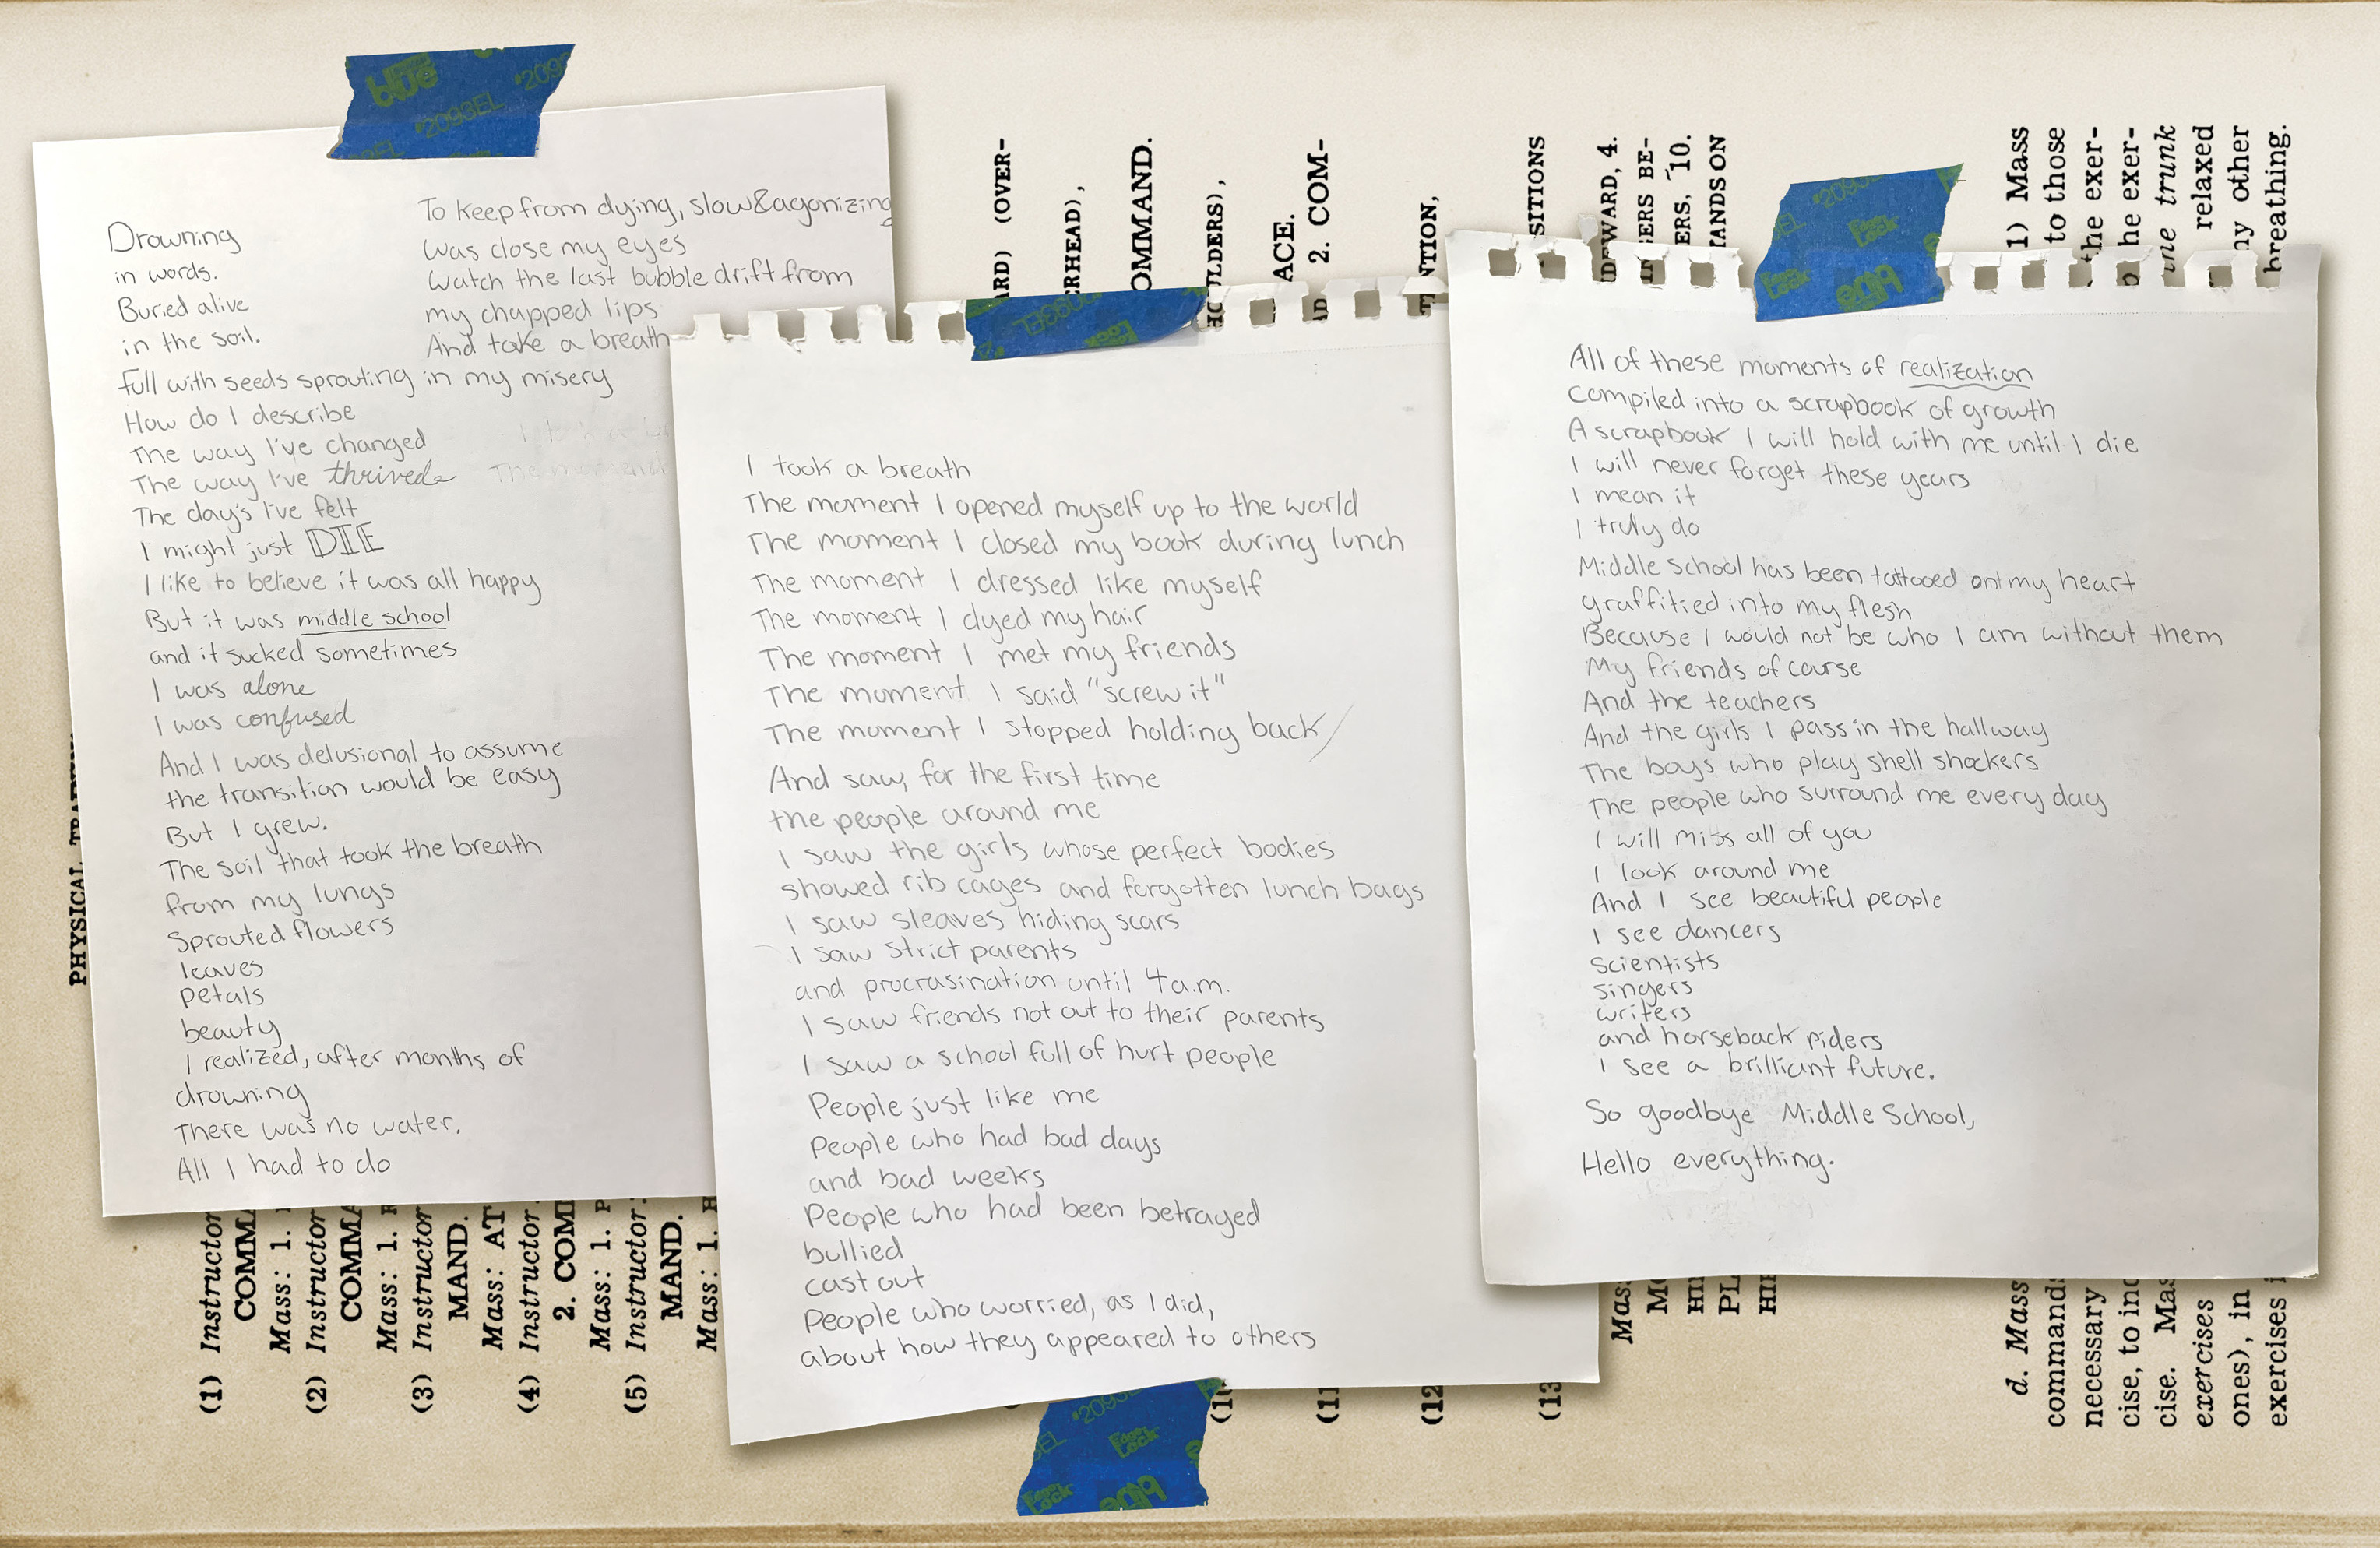 Drowning
in words.
Buried alive
in the soil.
full with seeds sprouting in my misery
How do I describe
The way I've changed
The way I've thrived
The day's I've felt
I might just DIE
I like to believe it was all happy
But it was middle school
and it sucked sometimes
I was alone
I was confused
And I was delusional to assume
the transition would be easy
But I grew.
The soil that took the breath
from my lungs
Sprouted flowers
leaves
petals
beauty
I realized, after months of
drowning
There was no water.
All I had to do
To keep from dying, slow&agonizing
was close my eyes
Watch the last bubble drift from
my chapped lips
And take a breath
I took a breath
The moment I opened myself up to the world
The moment I closed my book during lunch
The moment I dressed like myself
The moment I dyed my hair
The moment I met my friends
The moment I said "screw it"
The moment I stopped holding back
And saw, for the first time
the people around me
I saw the girls whose perfect bodies
showed rib cages and forgotten lunch bags
I saw sleaves hiding scars
I saw strict parents
and procrasination until 4a.m.
I saw friends not out to their parents
I saw a school full of hurt people
People just like me
People who had bad days
and bad weeks
People who had been betrayed
bullied
cast out
People who worried, as I did,
about how they appeared to others
All of these moments of realization
Compiled into a scrapbook of growth
A scrapbook I will hold with me until I die
I will never forget these years
I mean it
I truly do
Middle school has been tattooed on my heart
graffitied into my flesh
Because I would not be who I am without them
My friends of course
And the teachers
And the girls I pass in the hallway
The boys who play shell shockers
The people who surround me every day
I will miss all of you
I look around me
And I see beautiful people
I see dancers
Scientists
singers
writers
and horseback riders
I see a brilliant future.
So goodbye Middle School,
Hello everything.
PHYSICAL
(1) Instructor
COMMA
Mass: 1.
(2) Instructor
COMMA
Mass: 1.
(3) Instructor
MAND.
Mass: AT
(4) Instructor
2. COM
Mass: 1. P
(5) Instructor:
MAND.
Mass: 1.
(OVER-
RHEAD),
OMMAND.
OULDERS),
ACE.
2. COM-
NTION,
SITIONS
DEWARD, 4.
GERS BE-
ERS, 10.
TANDS ON
(11
(12
(13
Mass
PL
d. Mass
1) Mass
commands
to those
necessary
the exer-
cise, to inc
he exer-
cise. Mas
trunk
exercises
relaxed
ones), in
ny other
exercises
breathing.
blue
#2093EL
#2093EL
Edge Lock
blue
#2093EL
Edge Lock
blue